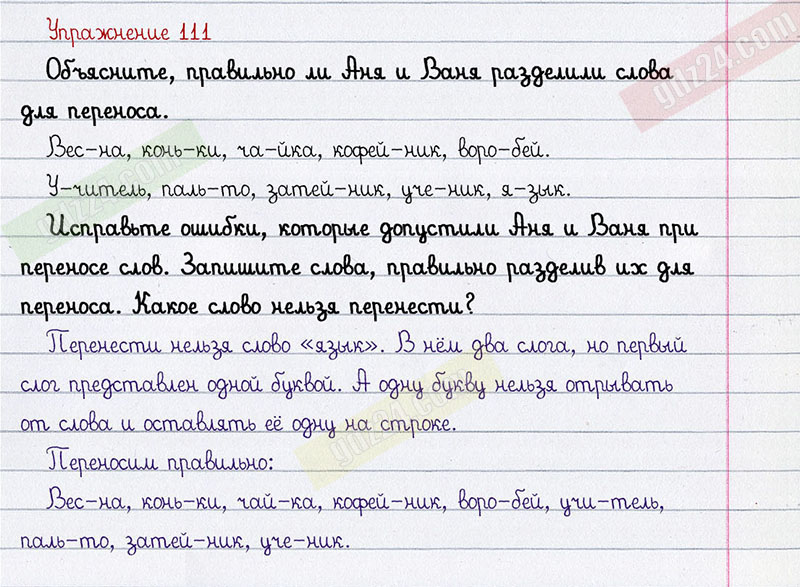 Упражнение 111
Объясните, правильно ли Аня и Ваня разделили слова
для переноса.
Вес-на, конь-ки, ча-йка, кофей-ник, воро-бей.
У-читель, паль-то, затей-ник, уче-ник, я-зык.
Исправьте ошибки, которые допустили Аня и Ваня при
переносе слов. Запишите слова, правильно разделив их для
переноса. Какое слово нельзя перенести?
Перенести нельзя слово «язык». В нём два слога, но первый
слог представлен одной буквой. А одну букву нельзя отрывать
от слова и оставлять её одну на строке.
Переносим правильно:
Вес-на, конь-ки, чай-ка, кофей-ник, воро-бей, учи-тель,
паль-то, затей-ник, уче-ник.
gdz24.com
gdz24.com
gdz24.com